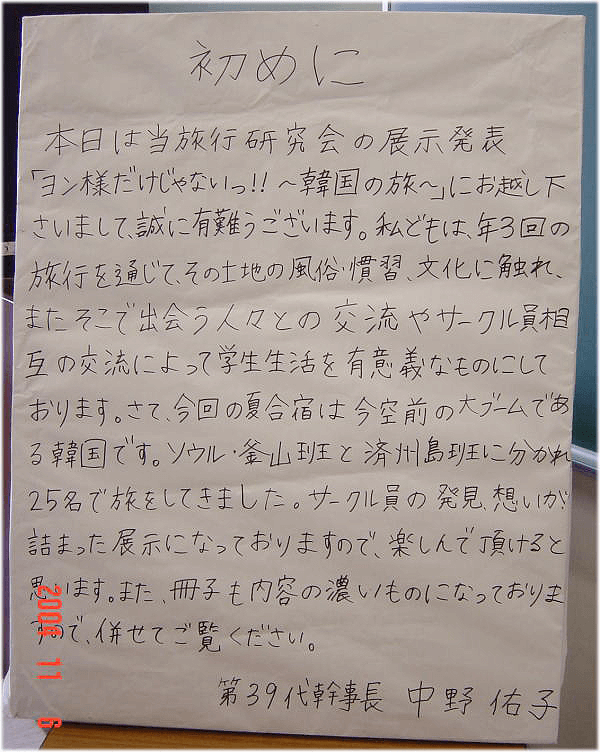 初めに
本日は当旅行研究会の展示発表
「ヨン様だけじゃないっ!!～韓国の旅～」にお越し下
さいまして、誠に有難うございます。私どもは、年3回の
旅行を通じて、その土地の風俗・慣習、文化に触れ、
またそこで出会う人々との交流やサークル員相
互の交流によって学生生活を有意義なものにして
おります。さて、今回の夏合宿は今空前の大ブームであ
る韓国です。ソウル・釜山班と済州島班に分かれ
25名で旅をしてきました。サークル員の発見、想いが
詰まった展示になっておりますので、楽しんで頂けると
思います。また、冊子も内容の濃いものになっておりま
すので、併せてご覧ください。
第39代幹事長 中野 佑子
2004 11 6